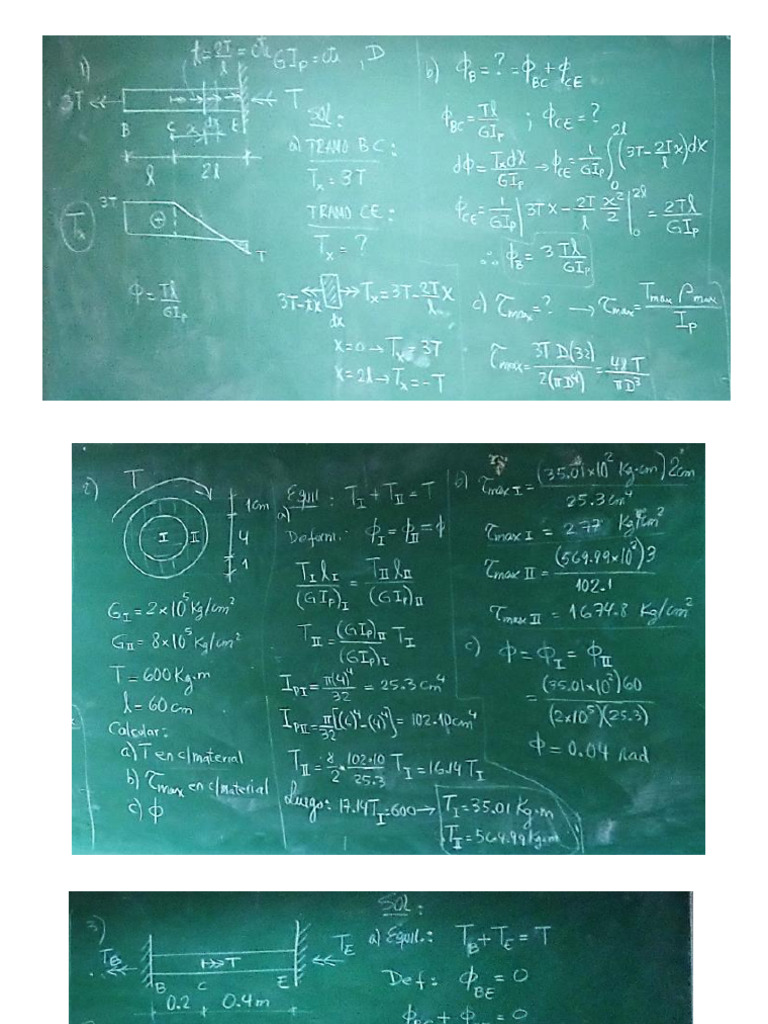 1)
t = 2T/l = cte
GIp = cte , D
3T T
B C x dx E
l 2l
3T
Tx
T
φ = Tl/GIp
SOL:
a) TRAMO BC:
Tx = 3T
TRAMO CE:
Tx = ?
3T - tx Tx = 3T - 2T/l x
dx
x = 0 → Tx = 3T
x = 2l → Tx = -T
b) φB = ? = φBC + φCE
φBC = Tl/GIp ; φCE = ?
dφ = Txdx/GIp → φCE = 1/GIp ∫₀^2l (3T - 2Tx/l) dx
φCE = 1/GIp | 3Tx - 2T/l x²/2 |₀^2l = 2Tl/GIp
∴ φB = 3 Tl/GIp
c) τmax = ? → τmax = Tmax ρmax/Ip
τmax = 3T D(32)/2(πD⁴) = 48T/πD³
2)
T
1cm
I II 4
1
GI = 2×10⁵ Kg/cm²
GII = 8×10⁵ Kg/cm²
T = 600 Kg.m
l = 60 cm
Calcular:
a) T en c/material
b) τmax en c/material
c) φ
Equil: TI + TII = T
a)
Deform.: φI = φII = φ
TI lI/(GIp)I = TII lII/(GIp)II
TII = (GIp)II/(GIp)I TI
IPI = π(4)⁴/32 = 25.3 cm⁴
IPII = π/32 [(6)⁴ - (4)⁴] = 102.10 cm⁴
TII = 8/2 . 102.10/25.3 TI = 16.14 TI
Luego: 17.14 TI = 600 → TI = 35.01 Kg.m
TII = 564.99 Kg.m
b) τmax I = (35.01×10² Kg-cm) 2cm/25.3 cm⁴
τmax I = 277 Kg/cm²
τmax II = (569.99×10²)3/102.1
τmax II = 1674.8 Kg/cm²
c) φ = φI = φII
= (35.01×10²)60/(2×10⁵)(25.3)
φ = 0.04 rad
3)
TB T TE
B C E
0.2 0.4m
SOL:
a) Equil.: TB + TE = T
Def: φBE = 0
φBC + φCE = 0